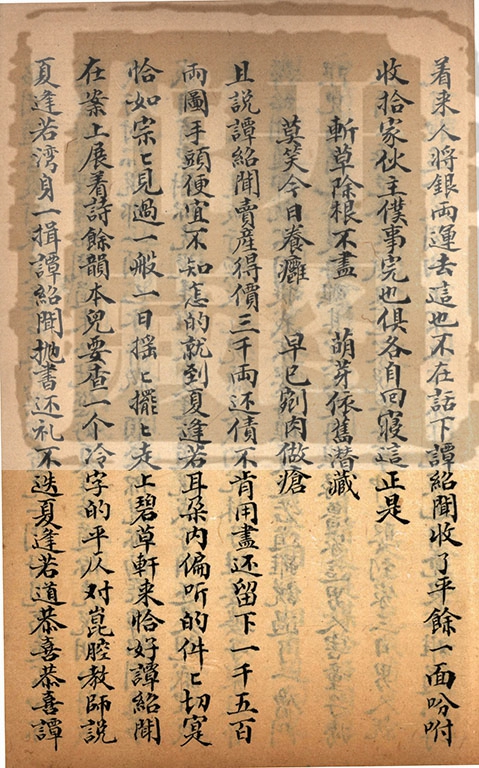 着来人将銀兩運去這也不在話下譚紹聞收了平餘一面吩咐
收拾家伙主僕事完也俱各自回寢這正是
斬草除根不盡　萌芽依舊潜藏
莫笑今日養癰　早已剜肉做瘡
且說譚紹聞賣產得價三千兩还債不肯用盡还留下一千五百
兩圖手頭便宜不知怎的就到夏逢若耳朶内偏听的件〻切寔
恰如宗〻見過一般一日揺〻擺〻走上碧草軒来恰好譚紹聞
在案上展着詩餘韻本兒要查一个冷字的平仄对崑腔教師說
夏逢若湾身一揖譚紹聞抛書还礼不迭夏逢若道恭喜恭喜譚